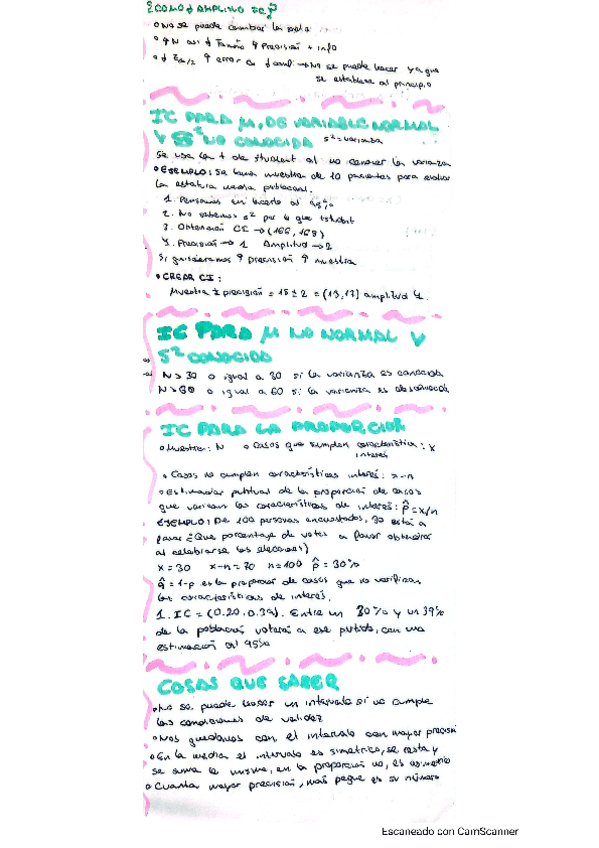 ¿COMO ↓ AMPLITUD IC?
No se puede cambiar la
↑ N así ↓ Tamaño ↑ Precisión + info
↑ error → No se puede hacer ya que
se establece al principio
IC PARA μ, DE VARIABLE NORMAL
Y S² NO CONOCIDA S² = varianza
Se usa la t de student al no conocer la varianza
EJEMPLO: Se toma muestra de 10 pacientes para evaluar
la estatura media poblacional.
1. Pensamos en hacerlo al 95%
2. No sabemos S² por lo que tstudent
3. Obtención CI → (166, 168)
4. Precisión → 1 Amplitud → 2
Si quisieramos ↑ precisión ↑ muestra
CREAR CI:
Muestra ± precisión = 15 ± 2 = (13, 17) amplitud 4.
IC PARA μ NO NORMAL Y
S² CONOCIDA
N > 30 o igual a 30 si la varianza es conocida
N > 60 o igual a 60 si la varianza es desconocida
IC PARA LA PROPORCIÓN
Muestra: N Casos que cumplen característica: x
interés
Casos no cumplen características interés: x-n
Estimador puntual de la proporción de casos
que las características de interés: p̂ = x/n
EJEMPLO: De 100 personas encuestadas, 30 está a
favor ¿Que porcentaje de votos a favor obtendrá
al celebrarse las elecciones)
x = 30 x-n = 70 n = 100 p̂ = 30%
q̂ = 1-p es la proporción de casos que no verifican
las características de interés.
1. IC = (0.20, 0.39). Entre un 30% y un 39%
de la población votará a ese partido, con una
estimación al 95%
COSAS QUE SABER
No se puede hacer un intervalo si no cumple
las condiciones de validez
Nos quedamos con el intervalo con mayor precisión
En la media el intervalo es simetrico, se resta y
se suma lo mismo, en la proporción no, es asimetrico
Cuanta mayor precisión, más peque es su número
Escaneado con CamScanner